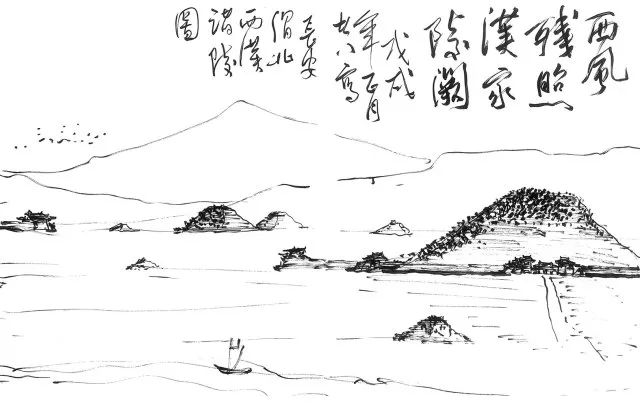 西風
殘照
漢家
陵闕
戊戌
年正月
廿八寫
長安
渭北
西漢
諸陵
圖